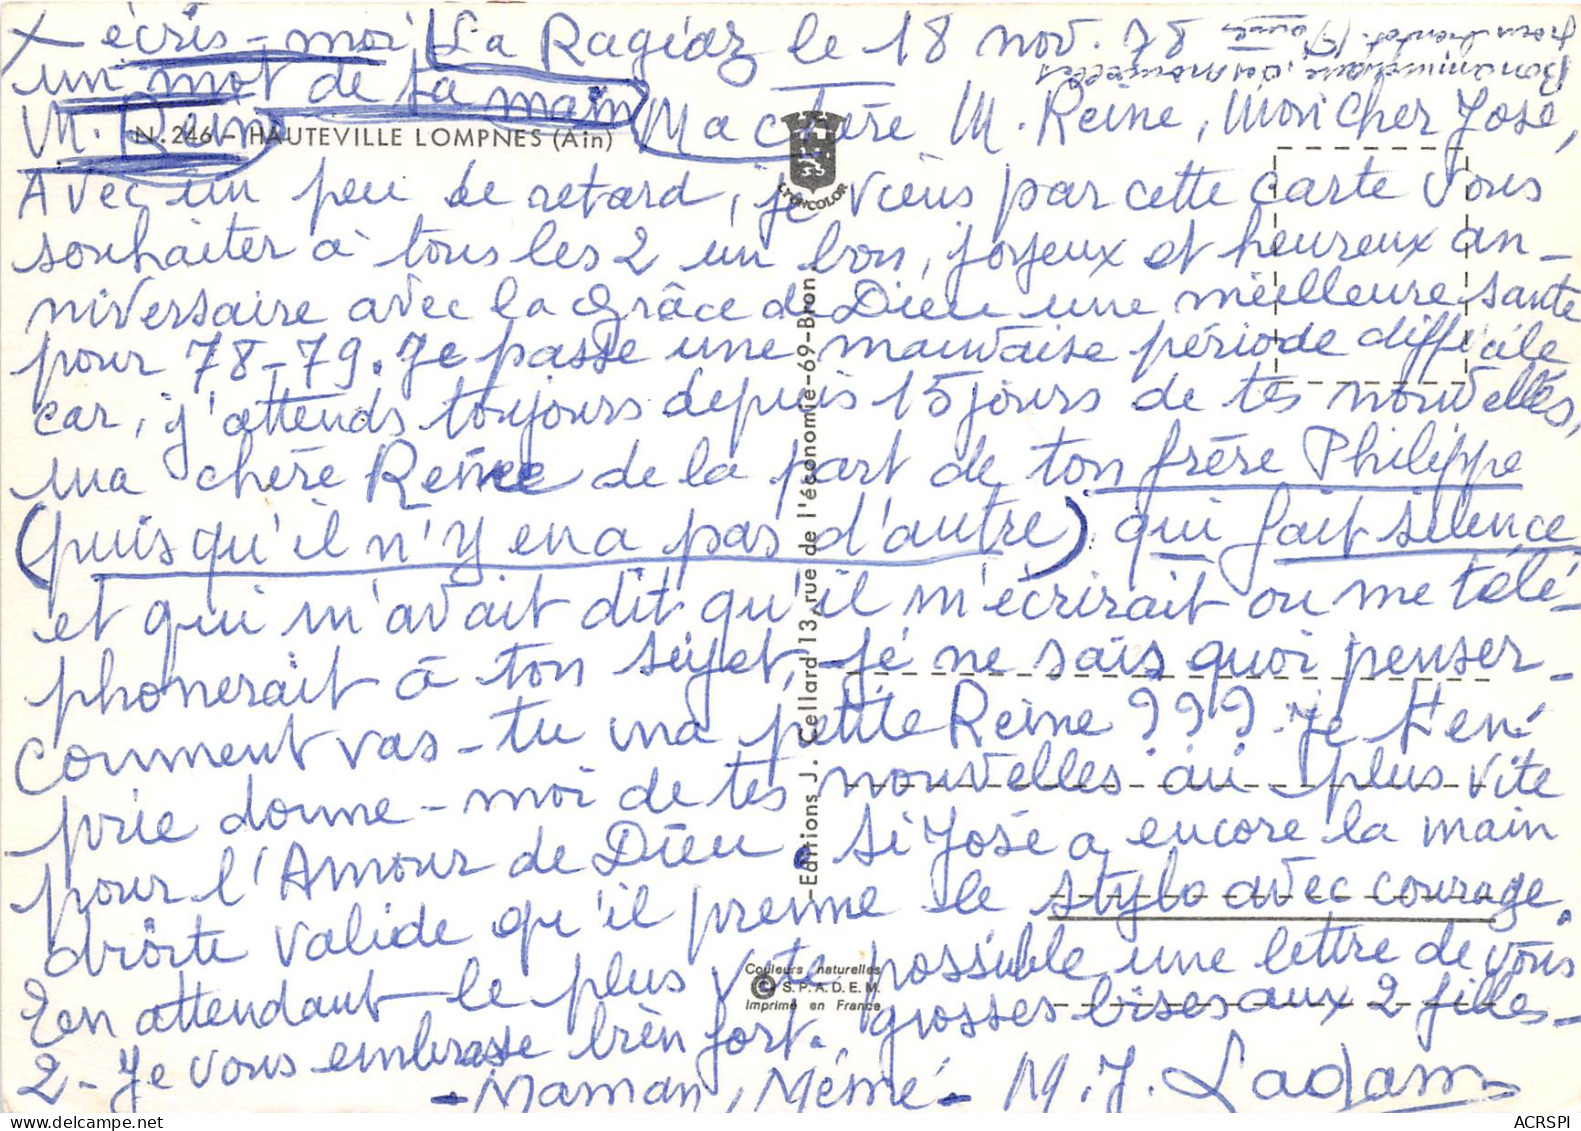 x écris-moi La Ragiaz le 18 nov. 78
un mot de ta main
M. Rein
Bon anniversaire, des nouvelles
N. 246 - HAUTEVILLE LOMPNES (Ain)
Ma chère M. Reine, Mon cher José,
Avec un peu de retard, je viens par cette carte vous
souhaiter à tous les 2 un bon, joyeux et heureux an-
niversaire avec la Grâce de Dieu une meilleure santé
pour 78-79. Je passe une mauvaise période difficile
car, j'attends toujours depuis 15 jours de tes nouvelles,
ma chère Reine de la part de ton frère Philippe
(puisqu'il n'y en a pas d'autre) qui fait silence
et qui m'avait dit qu'il m'écrirait ou me télé-
phonerait à ton sujet, je ne sais quoi penser-
Comment vas-tu ma petite Reine ??? Je t'en
prie donne-moi de tes nouvelles au plus vite
pour l'Amour de Dieu. Si José a encore la main
droite valide qu'il prenne le stylo avec courage.
En attendant le plus vite possible une lettre de vous
2 - Je vous embrasse bien fort. grosses bises aux 2 filles-
- Maman, Mémé - M. J. Ladam
LYONCOLOR
Editions J. Cellard 13, rue de l'économie-69-Bron
Couleurs naturelles
© S.P.A.D.E.M.
Imprimé en France
ACRSPI